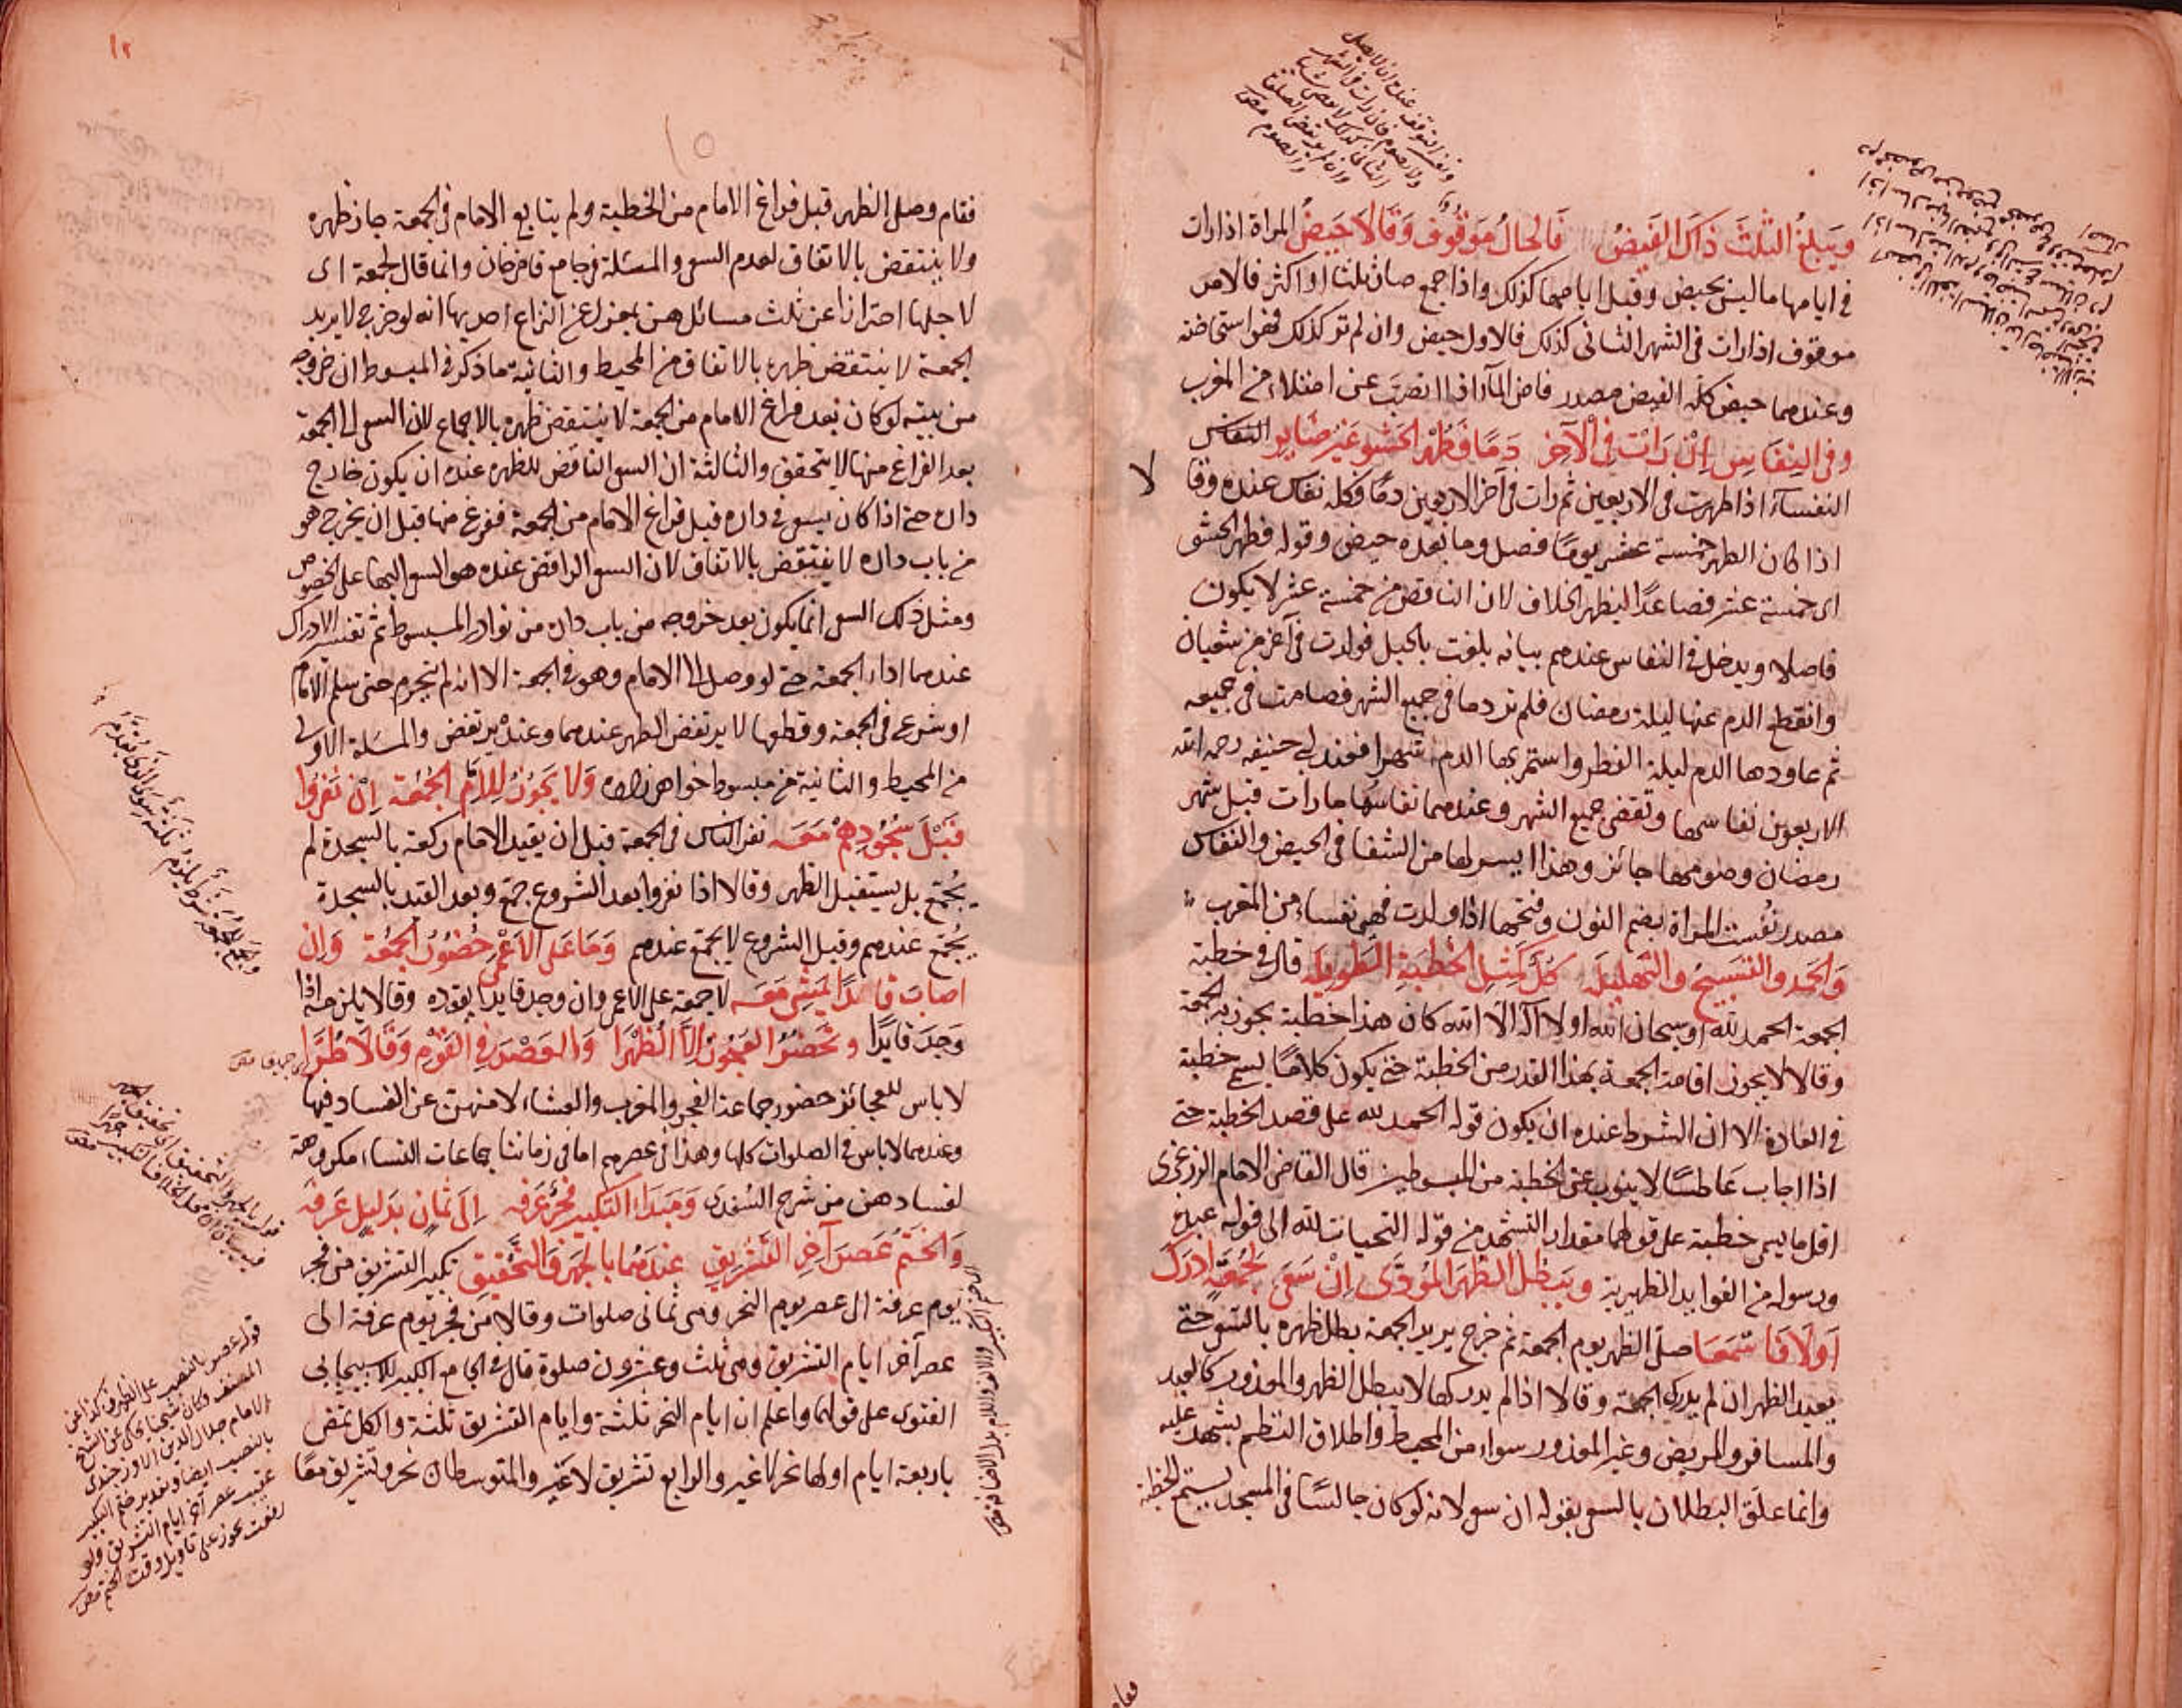 ويبلغ الثلث ذاك الفيض فالحال موقوف وقالا حيض المراة اذا رات
في ايامها ما ليس بحيض وقبل ايامها كذلك واذا جمع صار ثلثا او اكثر فالامر
موقوف اذا رات في الشهر الثاني كذلك فالاول حيض وان لم تر كذلك فهو استحاضة
وعندهما حيض كله الفيض مصدر فاض المآء اذا انصب عن امتلاء من المغرب
وفي النفاس ان رات في الآخر دما فطهر الحشو غير ضاير النفاس
النفسآء اذا طهرت في الاربعين ثم رات في آخر الاربعين دما فكله نفاس عنده وقالا
اذا كان الطهر خمسة عشر يوما فصل وما بعده حيض وقوله فطهر الحشو
اى خمسة عشر فصاعدا ليظهر الخلاف لان الناقص من خمسة عشر لا يكون
فاصلا ويدخل في النفاس عندهم بيانه بلغت بالحبل فولدت في آخر من شعبان
وانقطع الدم عنها ليلة رمضان فلم تر دما في جميع الشهر فصامت في جميعه
ثم عاودها الدم ليلة الفطر واستمر بها الدم شهرا فعند ابي حنيفه رحمه الله
الاربعون نفاسها وتقضي جميع الشهر وعندهما نفاسها ما رات قبل شهر
رمضان وصومها جائز وهذا ايسر لها من الشفا في الحيض والنفاس
مصدر نفست المراة بضم النون وفتحها اذا ولدت فهي نفساء من المغرب
والحمد والتسبيح والتهليل كل كمثل الخطبة الطويله قال في خطبة
الجمعة الحمد لله او سبحان الله او لا آله الا الله كان هذا خطبة يجوز به الجمعة
وقالا لا يجوز اقامة الجمعة بهذا القدر من الخطبة حتى يكون كلاما يسمى خطبة
في العادة الا ان الشرط عنده ان يكون قوله الحمد لله على قصد الخطبة حتى
اذا اجاب عاطسا لا ينوب عن الخطبة من المبسوطين قال القاضى الامام الزرنجرى
اقل ما يسمى خطبة على قولهما مقدار التشهد من قوله التحيات لله الى قوله عبده
ورسوله من الفوايد الظهيرية ويبطل الظهر المؤدى ان سعى لجمعة ادرك
او لا فاسمعا صلى الظهر يوم الجمعة ثم خرج يريد الجمعة بطل ظهره بالسعى حتى
يعيد الظهر ان لم يدرك الجمعة وقالا اذا لم يدركها لا يبطل الظهر والمعذور كالعبد
والمسافر والمريض وغير المعذور سواء من المحيط واطلاق النظم يشهد عليه
وانما علق البطلان بالسعى بقوله ان سعى لانه لو كان جالسا في المسجد يستمع الخطبة
١٢
١٥
فقام وصلى الظهر قبل فراغ الامام من الخطبة ولم يتابع الامام في الجمعة جاز ظهره
ولا ينتقض بالاتفاق لعدم السعى والمسئلة في جامع قاضى خان وانما قال لجمعة اى
لاجلها احترازا عن ثلث مسائل هن بمعزل عن النزاع احديها انه لو خرج لا يريد
الجمعة لا ينتقض ظهره بالاتفاق من المحيط والثانية ما ذكر في المبسوط ان خروجه
من بيته لو كان بعد فراغ الامام من الجمعة لا ينتقض ظهره بالاجماع لان السعى الى الجمعة
بعد الفراغ منها لا يتحقق والثالثة ان السعى الناقض للظهر عنده ان يكون خارج
داره حتى اذا كان يسعى في داره قبل فراغ الامام من الجمعة ففرغ منها قبل ان يخرج هو
من باب داره لا ينتقض بالاتفاق لان السعى الرافض عنده هو السعى اليها على الخصوص
ومثل ذلك السعى انما يكون بعد خروجه من باب داره من نوادر المبسوط ثم تفسير الادراك
عندهما اداء الجمعة حتى لو وصل الى الامام وهو في الجمعة الا انه لم يحرم حتى سلم الامام
او شرع في الجمعة وقطعها لا يرتفض الظهر عندهما وعنده يرتفض والمسئلة الاولى
من المحيط والثانية من مبسوط خواهر زاده ولا يجوز للامام الجمعة ان نفروا
قبل سجودهم معه نفر الناس في الجمعة قبل ان يقيد الامام ركعة بالسجدة لم
يجمع بل يستقبل الظهر وقالا اذا نفروا بعد الشروع جمع وبعد القيد بالسجدة
يجمع عندهم وقبل الشروع لا يجمع عندهم وما على الاعمى حضور الجمعة وان
اصاب قائدا ليمشى معه لا جمعة على الاعمى وان وجد قايدا يقوده وقالا يلزمه اذا
وجد قايدا وتحضر العجوز الا الظهرا والعصر في القوم وقالا طرا
لا باس للعجائز حضور جماعة الفجر والمغرب والعشاء لامنهن عن الفساد فيها
وعندهما لا باس في الصلوات كلها وهذا في عصرهم اما في زماننا جماعات النساء مكروهة
لفسادهن من شرح السغدى ومبدا التكبير فجر عرفه الى ثمان بدليل عرفه
والختم عصر آخر التشريق عندهما بالجهر فالتحقيق تكبير التشريق من فجر
يوم عرفة الى عصر يوم النحر وهي ثماني صلوات وقالا من فجر يوم عرفة الى
عصر آخر ايام التشريق وهي ثلث وعشرون صلوة قال في الجامع الكبير للاسبيجابي
الفتوى على قولهما واعلم ان ايام النحر ثلثة وايام التشريق ثلثة والكل تمضى
باربعة ايام اولها نحر لا غير والرابع تشريق لا غير والمتوسطان نحر وتشريق معا
قوله عصر بالنصب على الظرف كذا عن
المصنف وكان شيخنا يحكى عن الشيخ
الامام جلال الدين الاوزجندى
بالنصب ايضا وتقديره ختم التكبير
عقيب عصر آخر ايام التشريق ولو
رفعت يجوز على تاويل وقت الختم